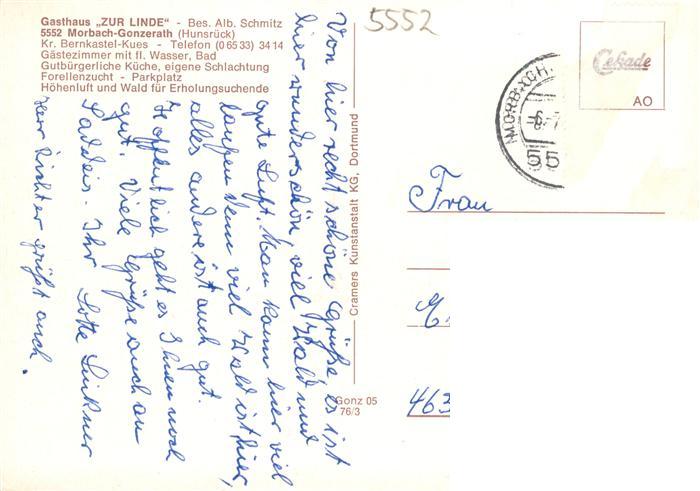 Gasthaus „ZUR LINDE" - Bes. Alb. Schmitz
5552 Morbach-Gonzerath (Hunsrück)
Kr. Bernkastel-Kues - Telefon (0 65 33) 34 14
Gästezimmer mit fl. Wasser, Bad
Gutbürgerliche Küche, eigene Schlachtung
Forellenzucht - Parkplatz
Höhenluft und Wald für Erholungsuchende
5552
Von hier recht schöne Grüße, es ist
hier wunderschön, viel Wald und
gute Luft. Man kann hier viel
laufen denn viel Wald ist hier,
alles andere ist auch gut.
Hoffentlich geht es Ihnen noch
gut. Viele Grüße auch an
Ihr Lotte
Herr Richter grüßt auch.
Cramers Kunstanstalt KG, Dortmund
Gonz 05
76/3
Cekade
AO
MORBACH
55
Frau
463